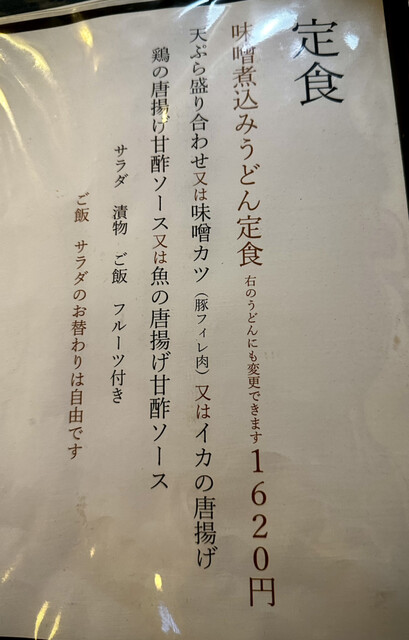 定食
味噌煮込みうどん定食 右のうどんにも変更できます 1620円
天ぷら盛り合わせ又は味噌カツ（豚フィレ肉）又はイカの唐揚げ
鶏の唐揚げ甘酢ソース又は魚の唐揚げ甘酢ソース
サラダ 漬物 ご飯 フルーツ付き
ご飯 サラダのお替わりは自由です